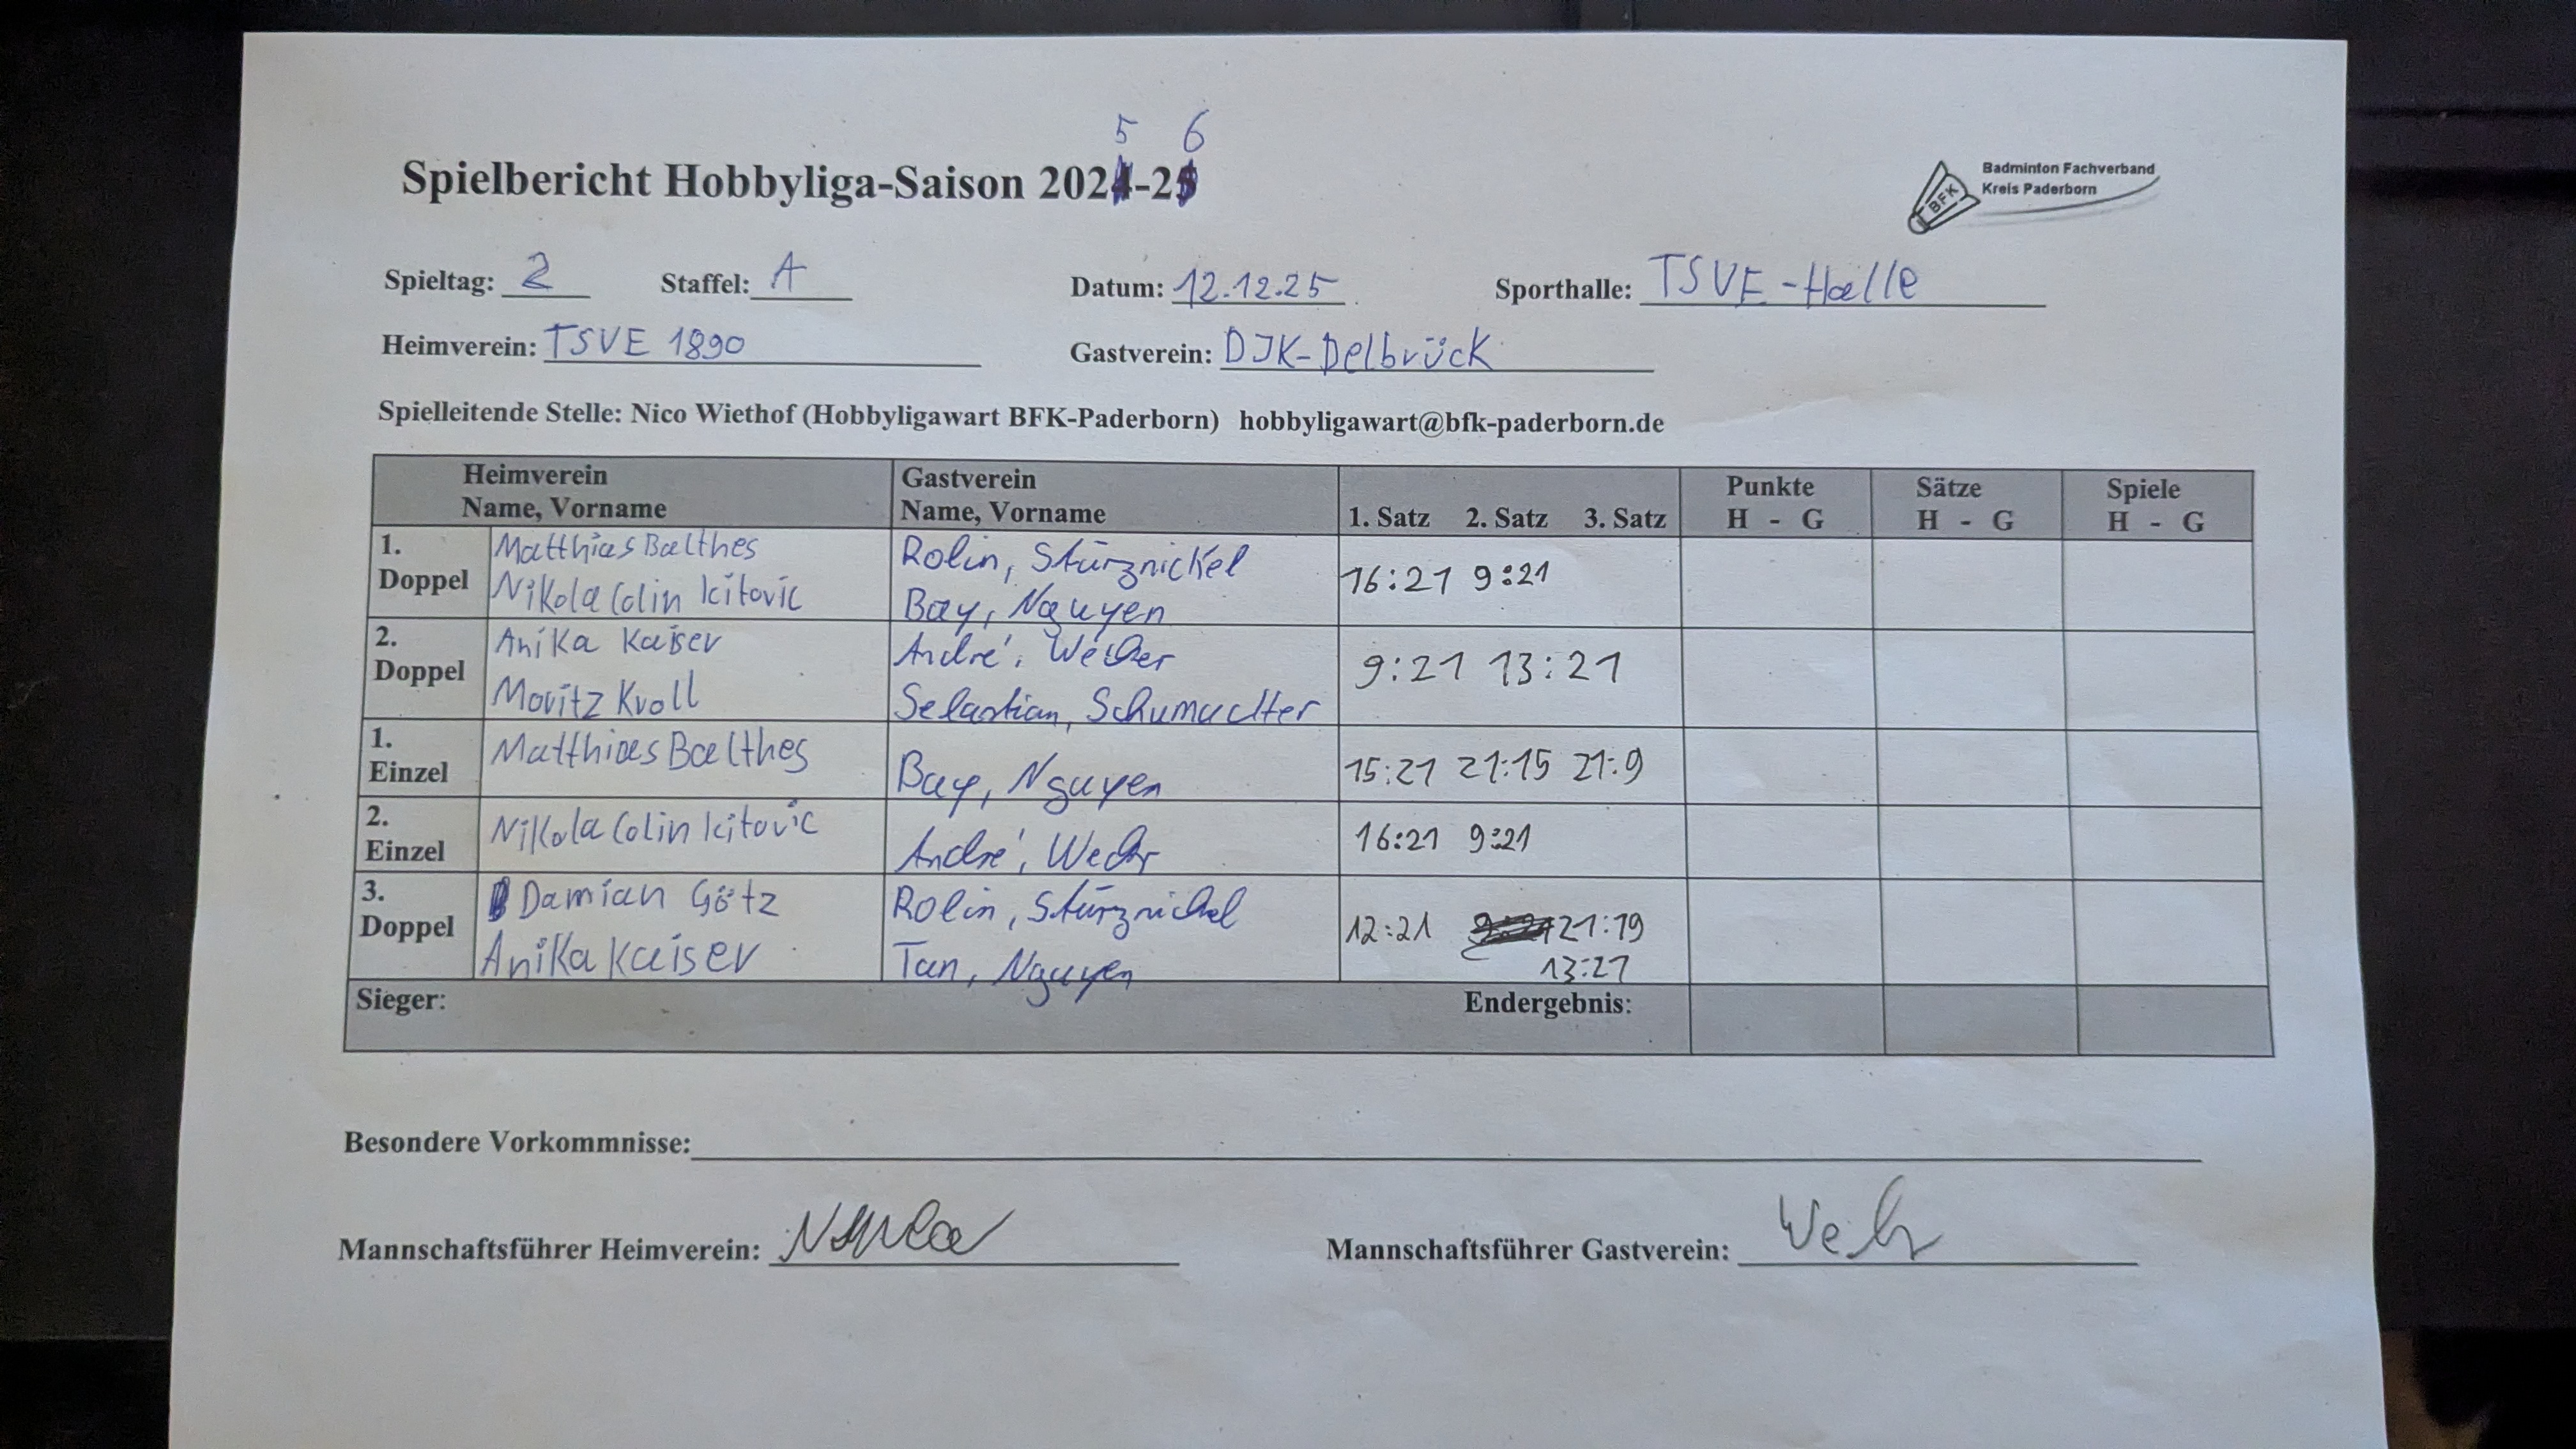 5 6
Spielbericht Hobbyliga-Saison 2024-25
Badminton Fachverband
Kreis Paderborn
BFK
Spieltag: 2 Staffel: A Datum: 12.12.25 Sporthalle: TSVE-Halle
Heimverein: TSVE 1890 Gastverein: DJK-Delbrück
Spielleitende Stelle: Nico Wiethof (Hobbyligawart BFK-Paderborn) hobbyligawart@bfk-paderborn.de
Heimverein Gastverein Punkte Sätze Spiele
Name, Vorname Name, Vorname 1. Satz 2. Satz 3. Satz H - G H - G H - G
1. Matthias Balthes Rolin, Stürznickel
Doppel Nikola Colin Kitovic Bay, Nguyen 16:21 9:21
2. Anika Kaiser André, Wecker
Doppel Moritz Kroll Sebastian, Schumacher 9:21 13:21
1. Matthias Balthes
Einzel Bay, Nguyen 15:21 21:15 21:9
2. Nikola Colin Kitovic
Einzel André, 16:21 9:21
3. Damian Götz Rolin, Stürznickel
Doppel Anika Kaiser Tan, Nguyen 12:21 21:19
13:21
Sieger: Endergebnis:
Besondere Vorkommnisse:
Mannschaftsführer Heimverein: Mannschaftsführer Gastverein: